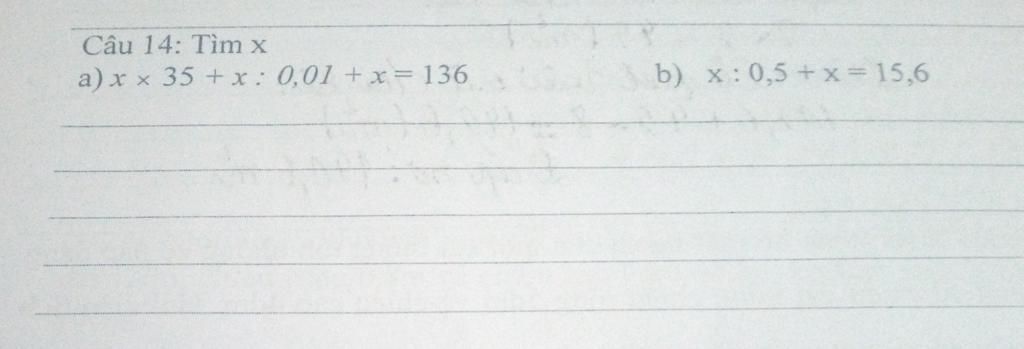 Câu 14: Tìm x
a) x × 35 + x : 0,01 + x = 136 b) x : 0,5 + x = 15,6